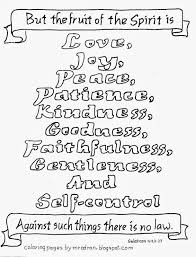 But the fruit of the Spirit is
Love,
Joy,
Peace,
Patience,
Kindness,
Goodness,
Faithfulness,
Gentleness,
And
Self-control
Galatians
Against such things there is no law.
coloring pages by mradron. blogspot.com